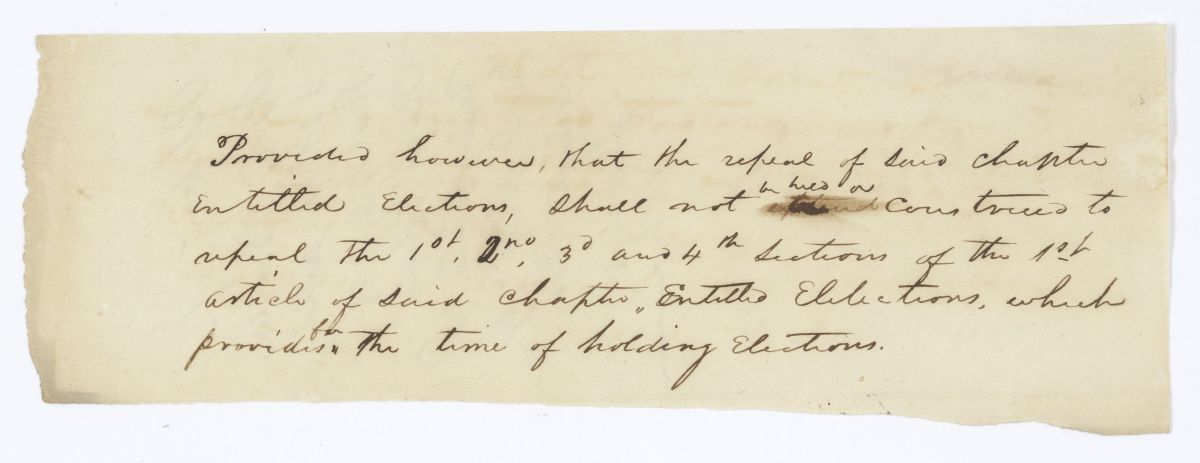 Provided however, that the repeal of said chapter
Entitled Elections, shall not be held or construed to
repeal the 1st, 2nd, 3d and 4th sections of the 1st
article of said chapter, Entitled Elelections, which
provides for the time of holding Elections.